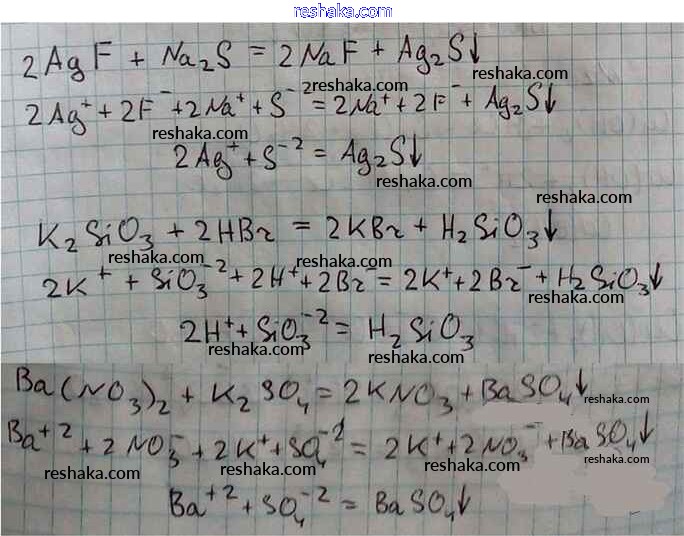 reshaka.com
2AgF + Na₂S = 2NaF + Ag₂S↓
reshaka.com
2Ag⁺ + 2F⁻ + 2Na⁺ + S⁻² = 2Na⁺ + 2F⁻ + Ag₂S↓
reshaka.com reshaka.com reshaka.com
2Ag⁺ + S⁻² = Ag₂S↓
reshaka.com
reshaka.com
K₂SiO₃ + 2HBr = 2KBr + H₂SiO₃↓
reshaka.com reshaka.com
2K⁺ + SiO₃⁻² + 2H⁺ + 2Br⁻ = 2K⁺ + 2Br⁻ + H₂SiO₃↓
reshaka.com reshaka.com
2H⁺ + SiO₃⁻² = H₂SiO₃
reshaka.com reshaka.com
Ba(NO₃)₂ + K₂SO₄ = 2KNO₃ + BaSO₄↓
reshaka.com reshaka.com
Ba⁺² + 2NO₃⁻ + 2K⁺ + SO₄⁻² = 2K⁺ + 2NO₃⁻ + BaSO₄↓
reshaka.com reshaka.com reshaka.com
Ba⁺² + SO₄⁻² = BaSO₄↓
reshaka.com reshaka.com